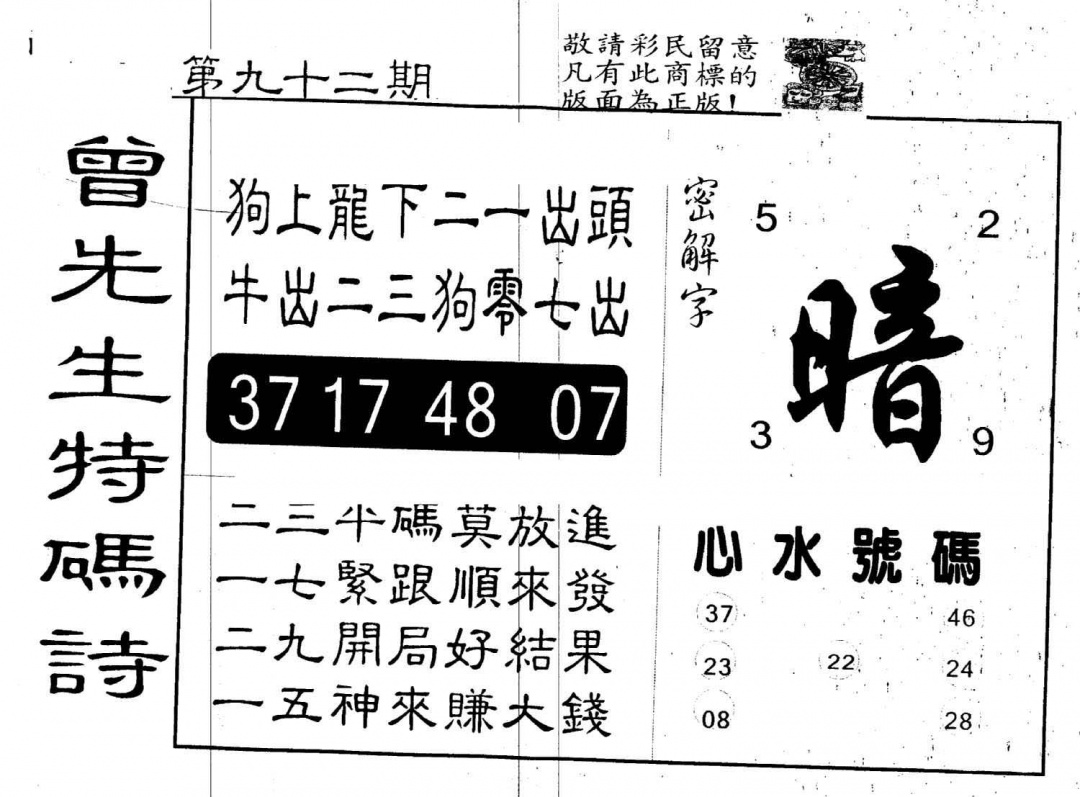 敬請彩民留意
凡有此商標的
版面為正版!
第九十二期
曾先生特碼詩
狗上龍下二一出頭
牛出二三狗零七出
37 17 48 07
二三半碼莫放進
一七緊跟順來發
二九開局好結果
一五神來賺大錢
密解字
5 2
暗
3 9
心水號碼
37 46
23 22 24
08 28